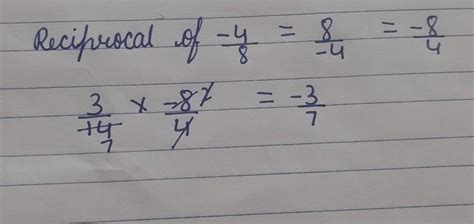 Reciprocal of -4/8 = 8/-4 = -8/4
3/14 7 × -8 2/4 = -3/7